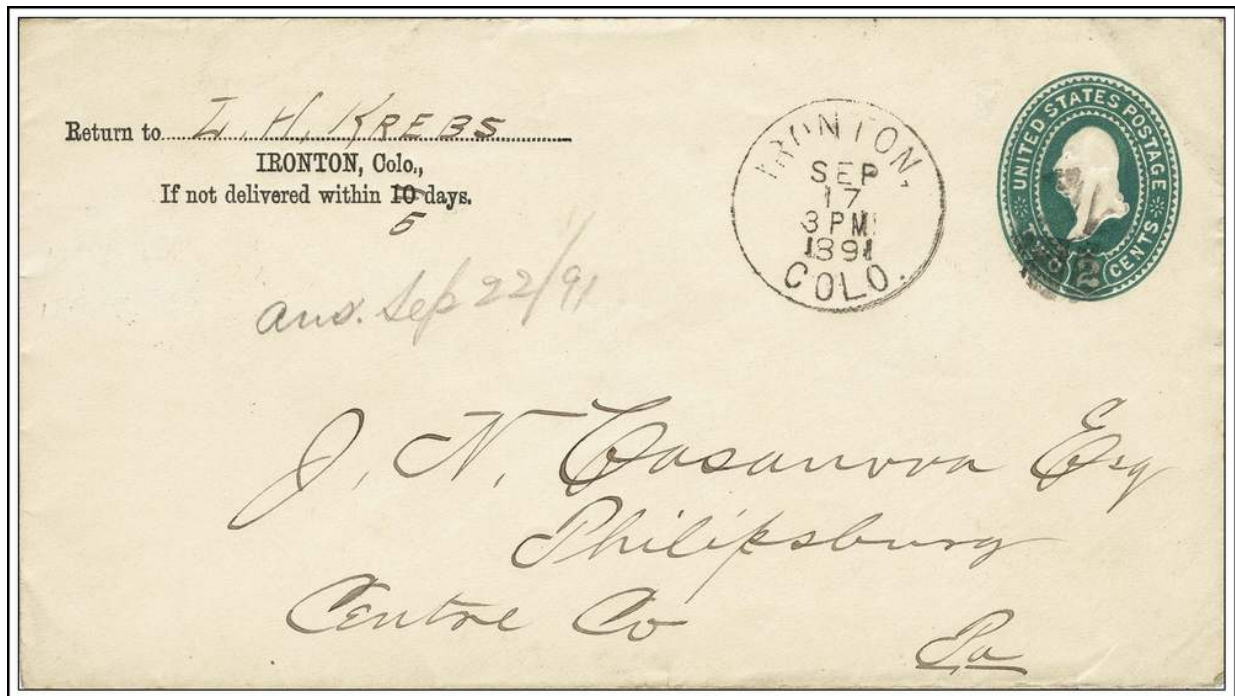 Return to I. H. KREBS
IRONTON, Colo.,
If not delivered within 10 days.
5
ans. Sep 22/91
IRONTON,
SEP
17
3 PM
1891
COLO.
UNITED STATES POSTAGE
TWO 2 CENTS
J. N. Casanova Esq
Philipsburg
Centre Co
Pa